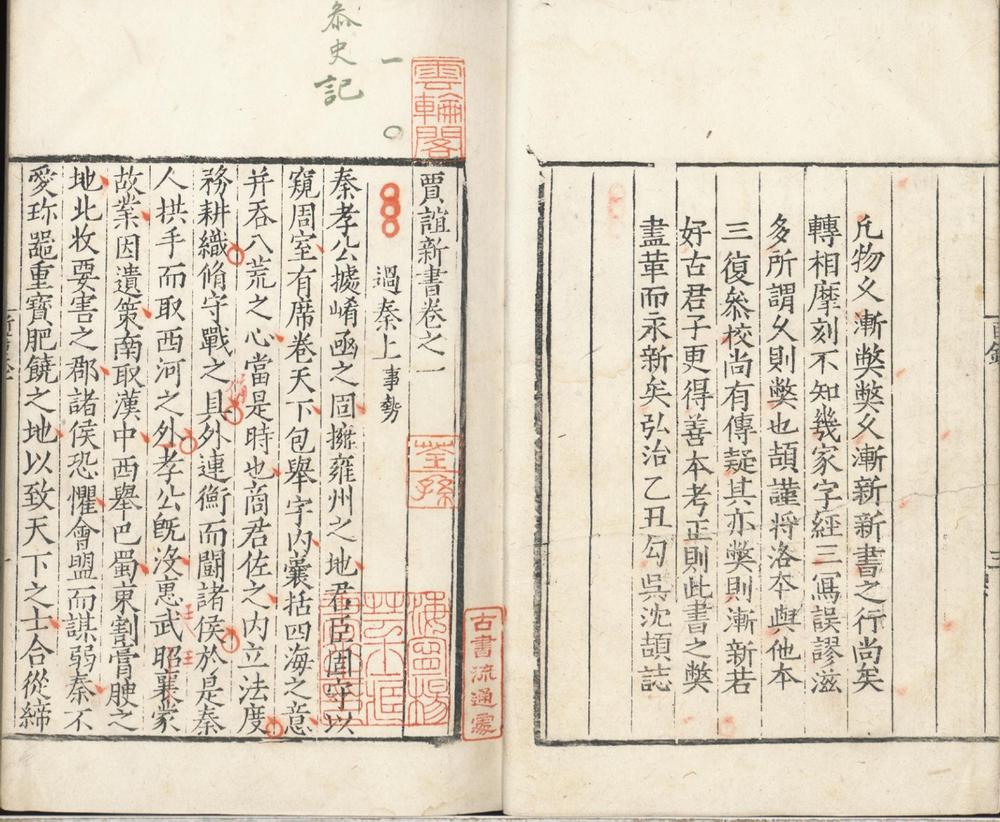 凡物久漸獘獘久漸新新書之行尚矣
轉相摩刻不知幾家字經三寫誤謬滋
多所謂久則獘也頡謹将洛本與他本
三復叅校尚有傳疑其亦獘則漸新若
好古君子更得善本考正則此書之獘
盡革而永新矣弘治乙丑勾吳沈頡誌
叅史記
一
雲輪閣
賈誼新書卷之一
荃孫
古書流通處
過秦上 事勢
秦孝公據崤凾之固擁雍州之地君臣固守以
窺周室有席卷天下包舉宇内囊括四海之意
并吞八荒之心當是時也商君佐之内立法度
務耕織脩守戰之具外連衡而鬭諸侯於是秦
人拱手而取西河之外孝公旣没惠武昭襄蒙
王
王
故業因遺策南取漢中西舉巴蜀東割膏腴之
地北收要害之郡諸侯恐懼會盟而謀弱秦不
愛珎噐重寶肥饒之地以致天下之士合從締